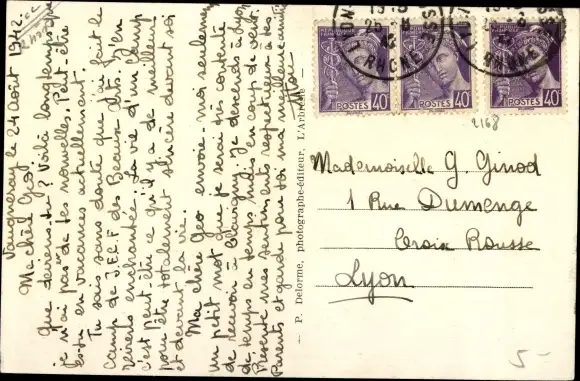 Vaugneray le 24 Août 1942.
Ma chère Geo!
Que deviens-tu? Voilà longtemps que
je n'ai pas de tes nouvelles. Peut-être
es-tu en vacances actuellement.
Tu sais sans doute que j'ai fait le
Camp de J.E.C.F des Beaux arts. J'en
reviens enchantée. La vie d'un Camp
c'est peut-être ce qu'il y a de meilleur
pour être totalement sincère devant soi
et devant la vie.
Ma chère Geo envoie-moi seulement
un petit mot que je serai très contente
de recevoir à je descends à Lyon
de temps en temps mais en coup de vent.
Présente mes sentiments respectueux à tes
Parents et garde pour toi ma meilleure amitié
— P. Delorme, photographe-éditeur, L'Arbresle —
LYON
RHONE
25
POSTES 40c
LYON
RHONE
25
POSTES 40c
POSTES 40c
2168
Mademoiselle G. Ginod
1 Rue Dumenge
Croix Rousse
Lyon
5-